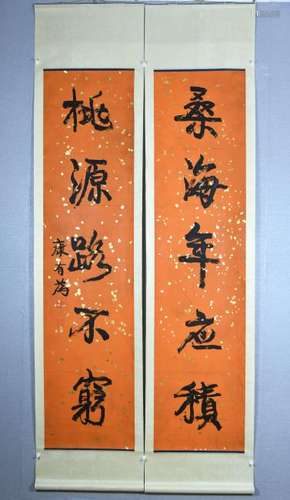 桑海年应積
桃源路不窮
康有為